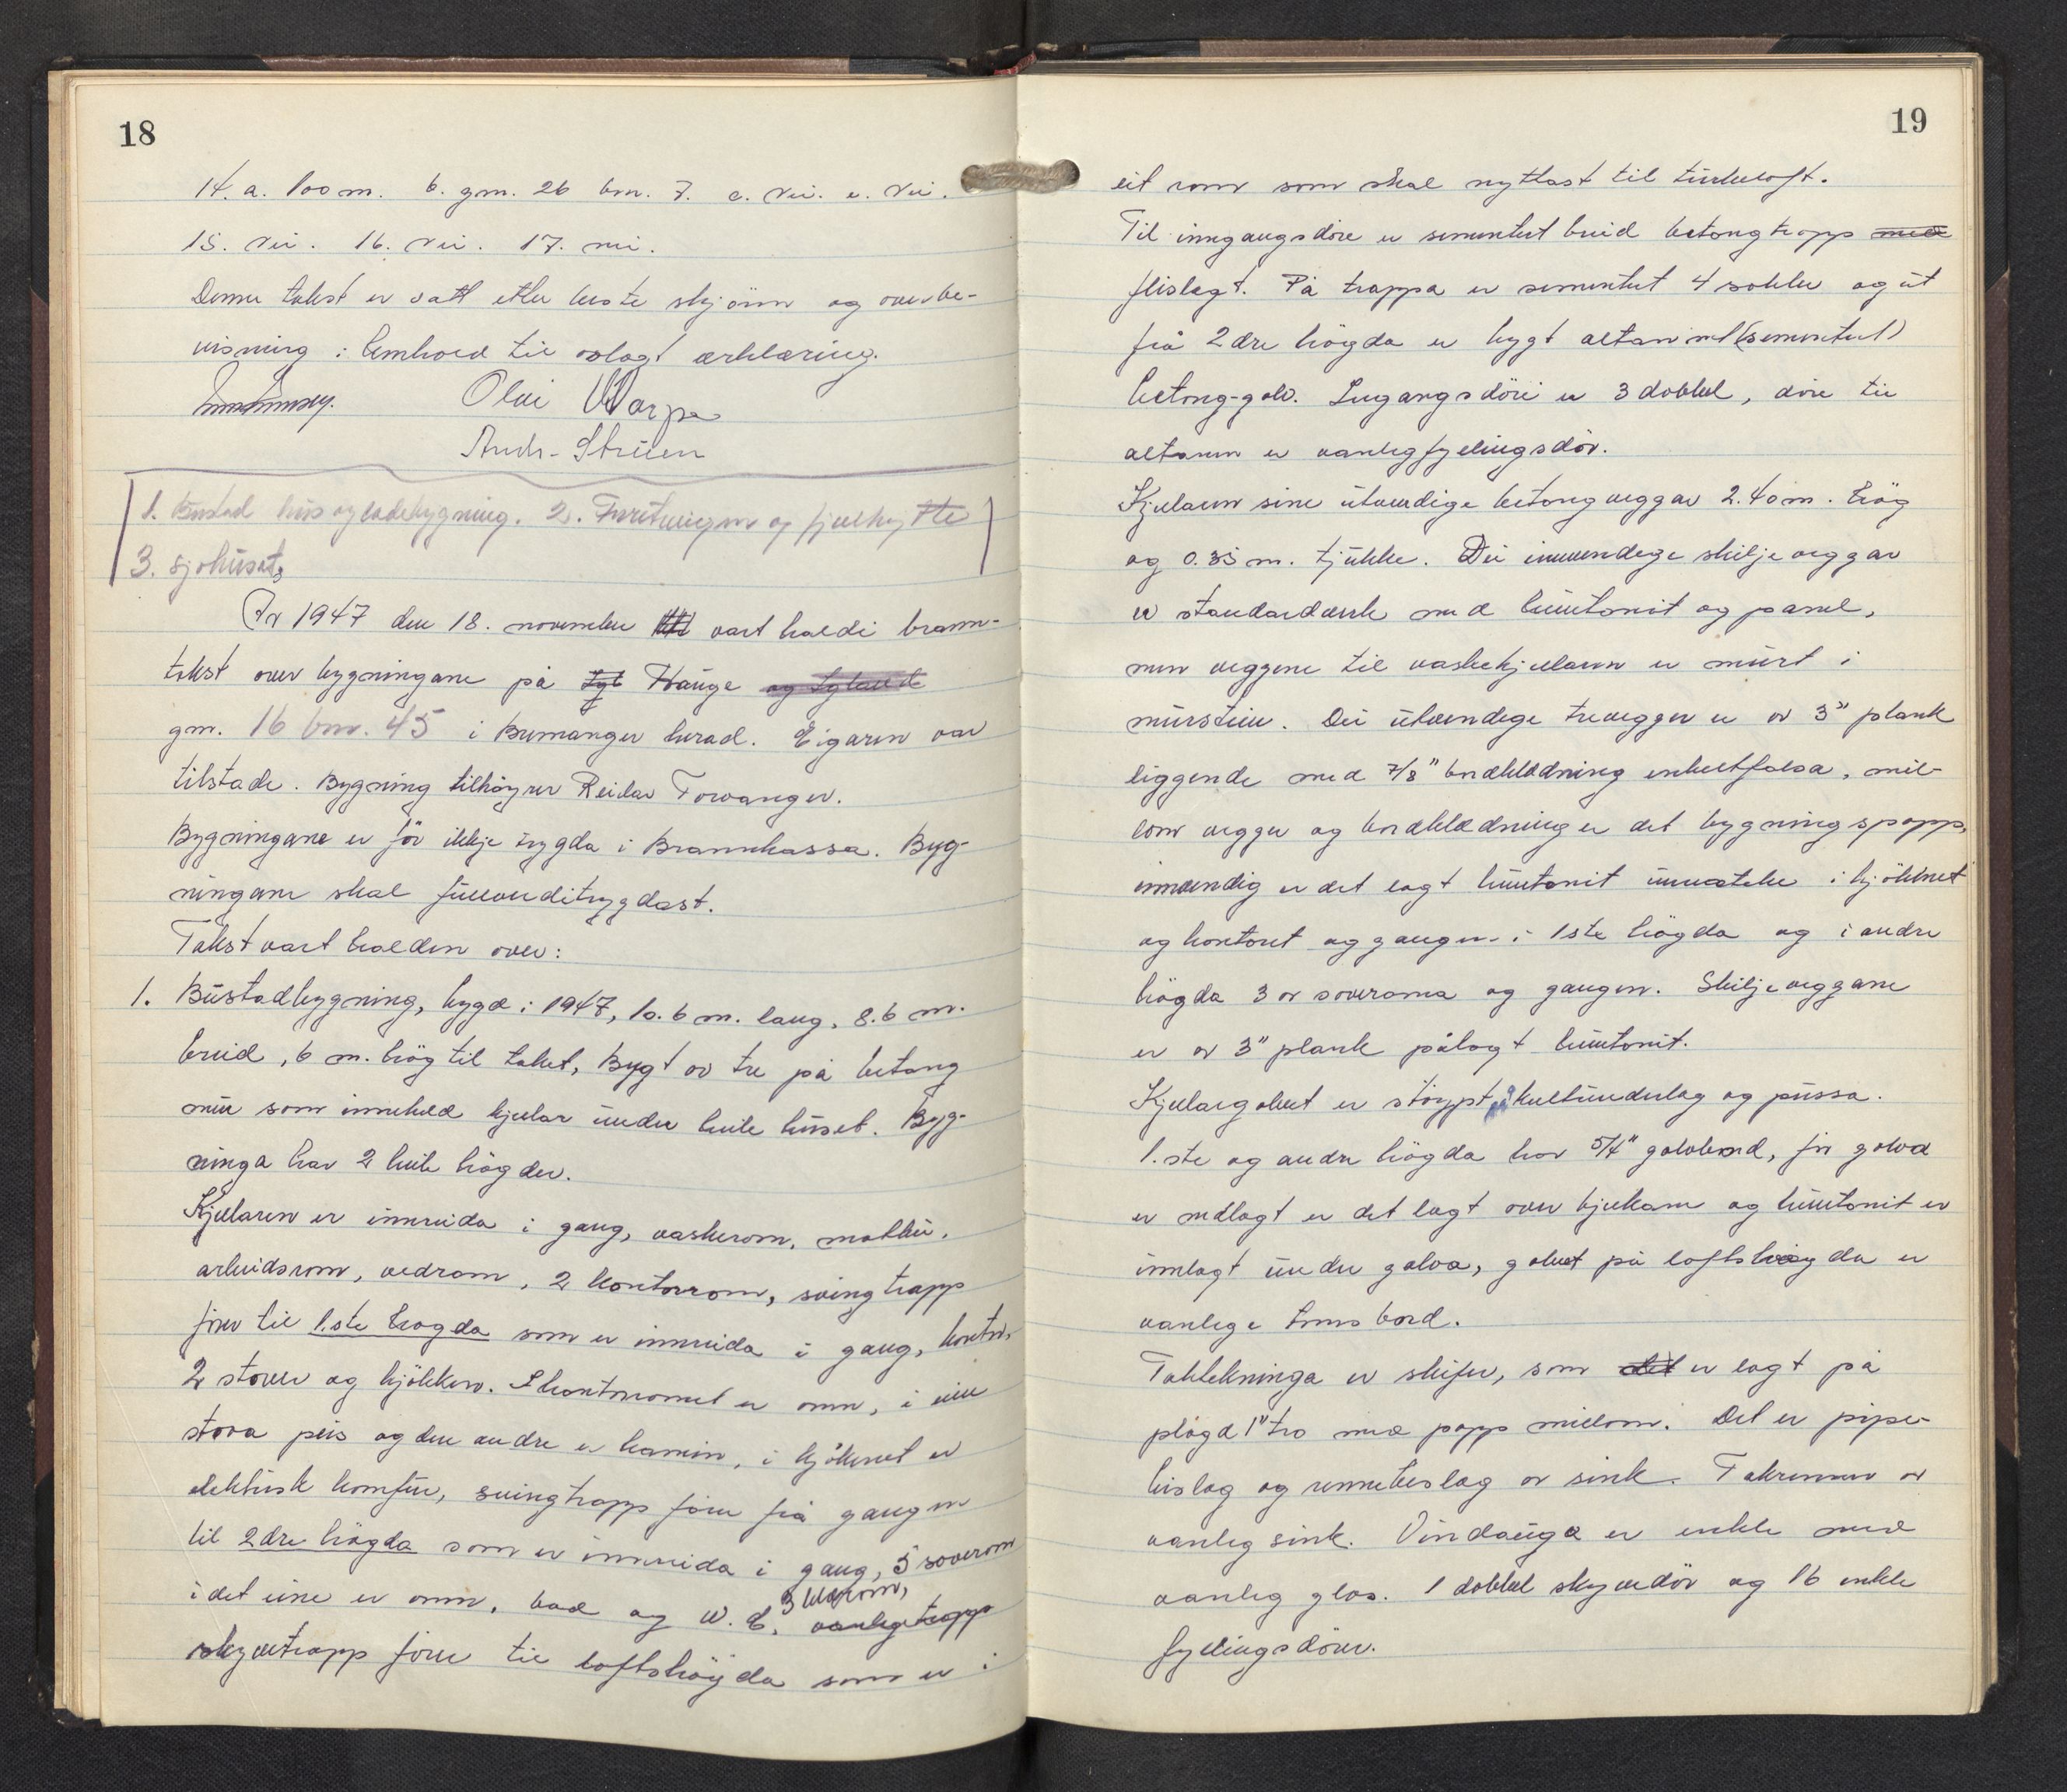 18
14. a. 100 m. b. gm. 26 bm. 7. c. nei. e. nei.
15. nei. 16. nei. 17. nei.
Denne takst er satt etter beste skjönn og overbe-
visning i henhold til avlagt erklæring.
Olai Warpe
Andr. Strüen
1. Bustad hus og ladebygning. 2. Forretningen og fjælhytte
3. sjøhuset,
År 1947 den 18. november vart haldi brann-
takst over bygningane på Hauge og
gm. 16 bnr. 45 i Bremanger herad. Eigaren var
tilstade. Bygning tilhöyrer Reidar Torvanger.
Bygningane er för ikkje trygda i Brannkassa. Byg-
ningane skal fullverditrygdast.
Takst vart halden over:
1. Bustadbygning, bygd i 1947, 10.6 m. lang, 8.6 m.
breid, 6 m. hög til taket, Bygt av tre på betong
mur som inneheld kjellar under heile huset. Byg-
ninga har 2 heile högder.
Kjellaren er innreida i gang, vaskerom, matbu,
arbeidsrom, vedrom, 2 kontorrom, svingtrapp
förer til 1.ste högda som er innreida i gang, kontor,
2 stover og kjökken. I kontorromet er omn, i eine
stova peis og den andre er kamin, i kjökenet er
elektrisk komfur, svingtrapp förer frå gangen
til 2dre högda som er innreida i gang, 5 soverom
i det eine er omn, bad og w.c. 3 klerom, vanlegetrapp
skyvetrapp förer til loftshögda som er i
19
eit rom som skal nyttast til turkeloft.
Til inngangsdöre er sementert breid betongtrapp med
flislagt. På trappa er sementert 4 sokler og ut
frå 2dre högda er bygt altan med (sementert)
betong-golv. Inngangsdöri er 3 dobbel, döre til
altanen er vanleg fyllingsdör.
Kjellaren sine utvendige betongveggar 2.40 m. hög
og 0.35 m. tjukke. Dei innvendige skiljeveggar
er standardverk med huntonit og panel,
men veggene til vaskekjellaren er murt i
murstein. Dei utvendige trevegger er av 3" plank
liggende med 7/8" bordkledning enkeltfalsa, mil-
lom vegger og bordkledning er det bygningspapp,
innvendig er det lagt huntonit unnateke i kjökenet
og kontoret og gangen i 1ste högda og i andre
högda 3 av soveroma og gangen. Skiljeveggane
er av 3" plank pålagt huntonit.
Kjellargolvet er stöypt på kultunderlag og pussa.
1.ste og andre högda har 5/4" golvbord, för golva
er nedlagt er det lagt over bjelkane og huntonit er
innlagt under golva, golvet på loftshögda er
vanlege tomsbord.
Taktekninga er skifer, som det er lagt på
plögd 1" tro med papp millom. Det er pipe-
beslag og rennebeslag av sink. Takrenner av
vanleg sink. Vindauga er enkle med
vanleg glas. 1 dobbel skyvedör og 16 enkle
fyllingsdörer.